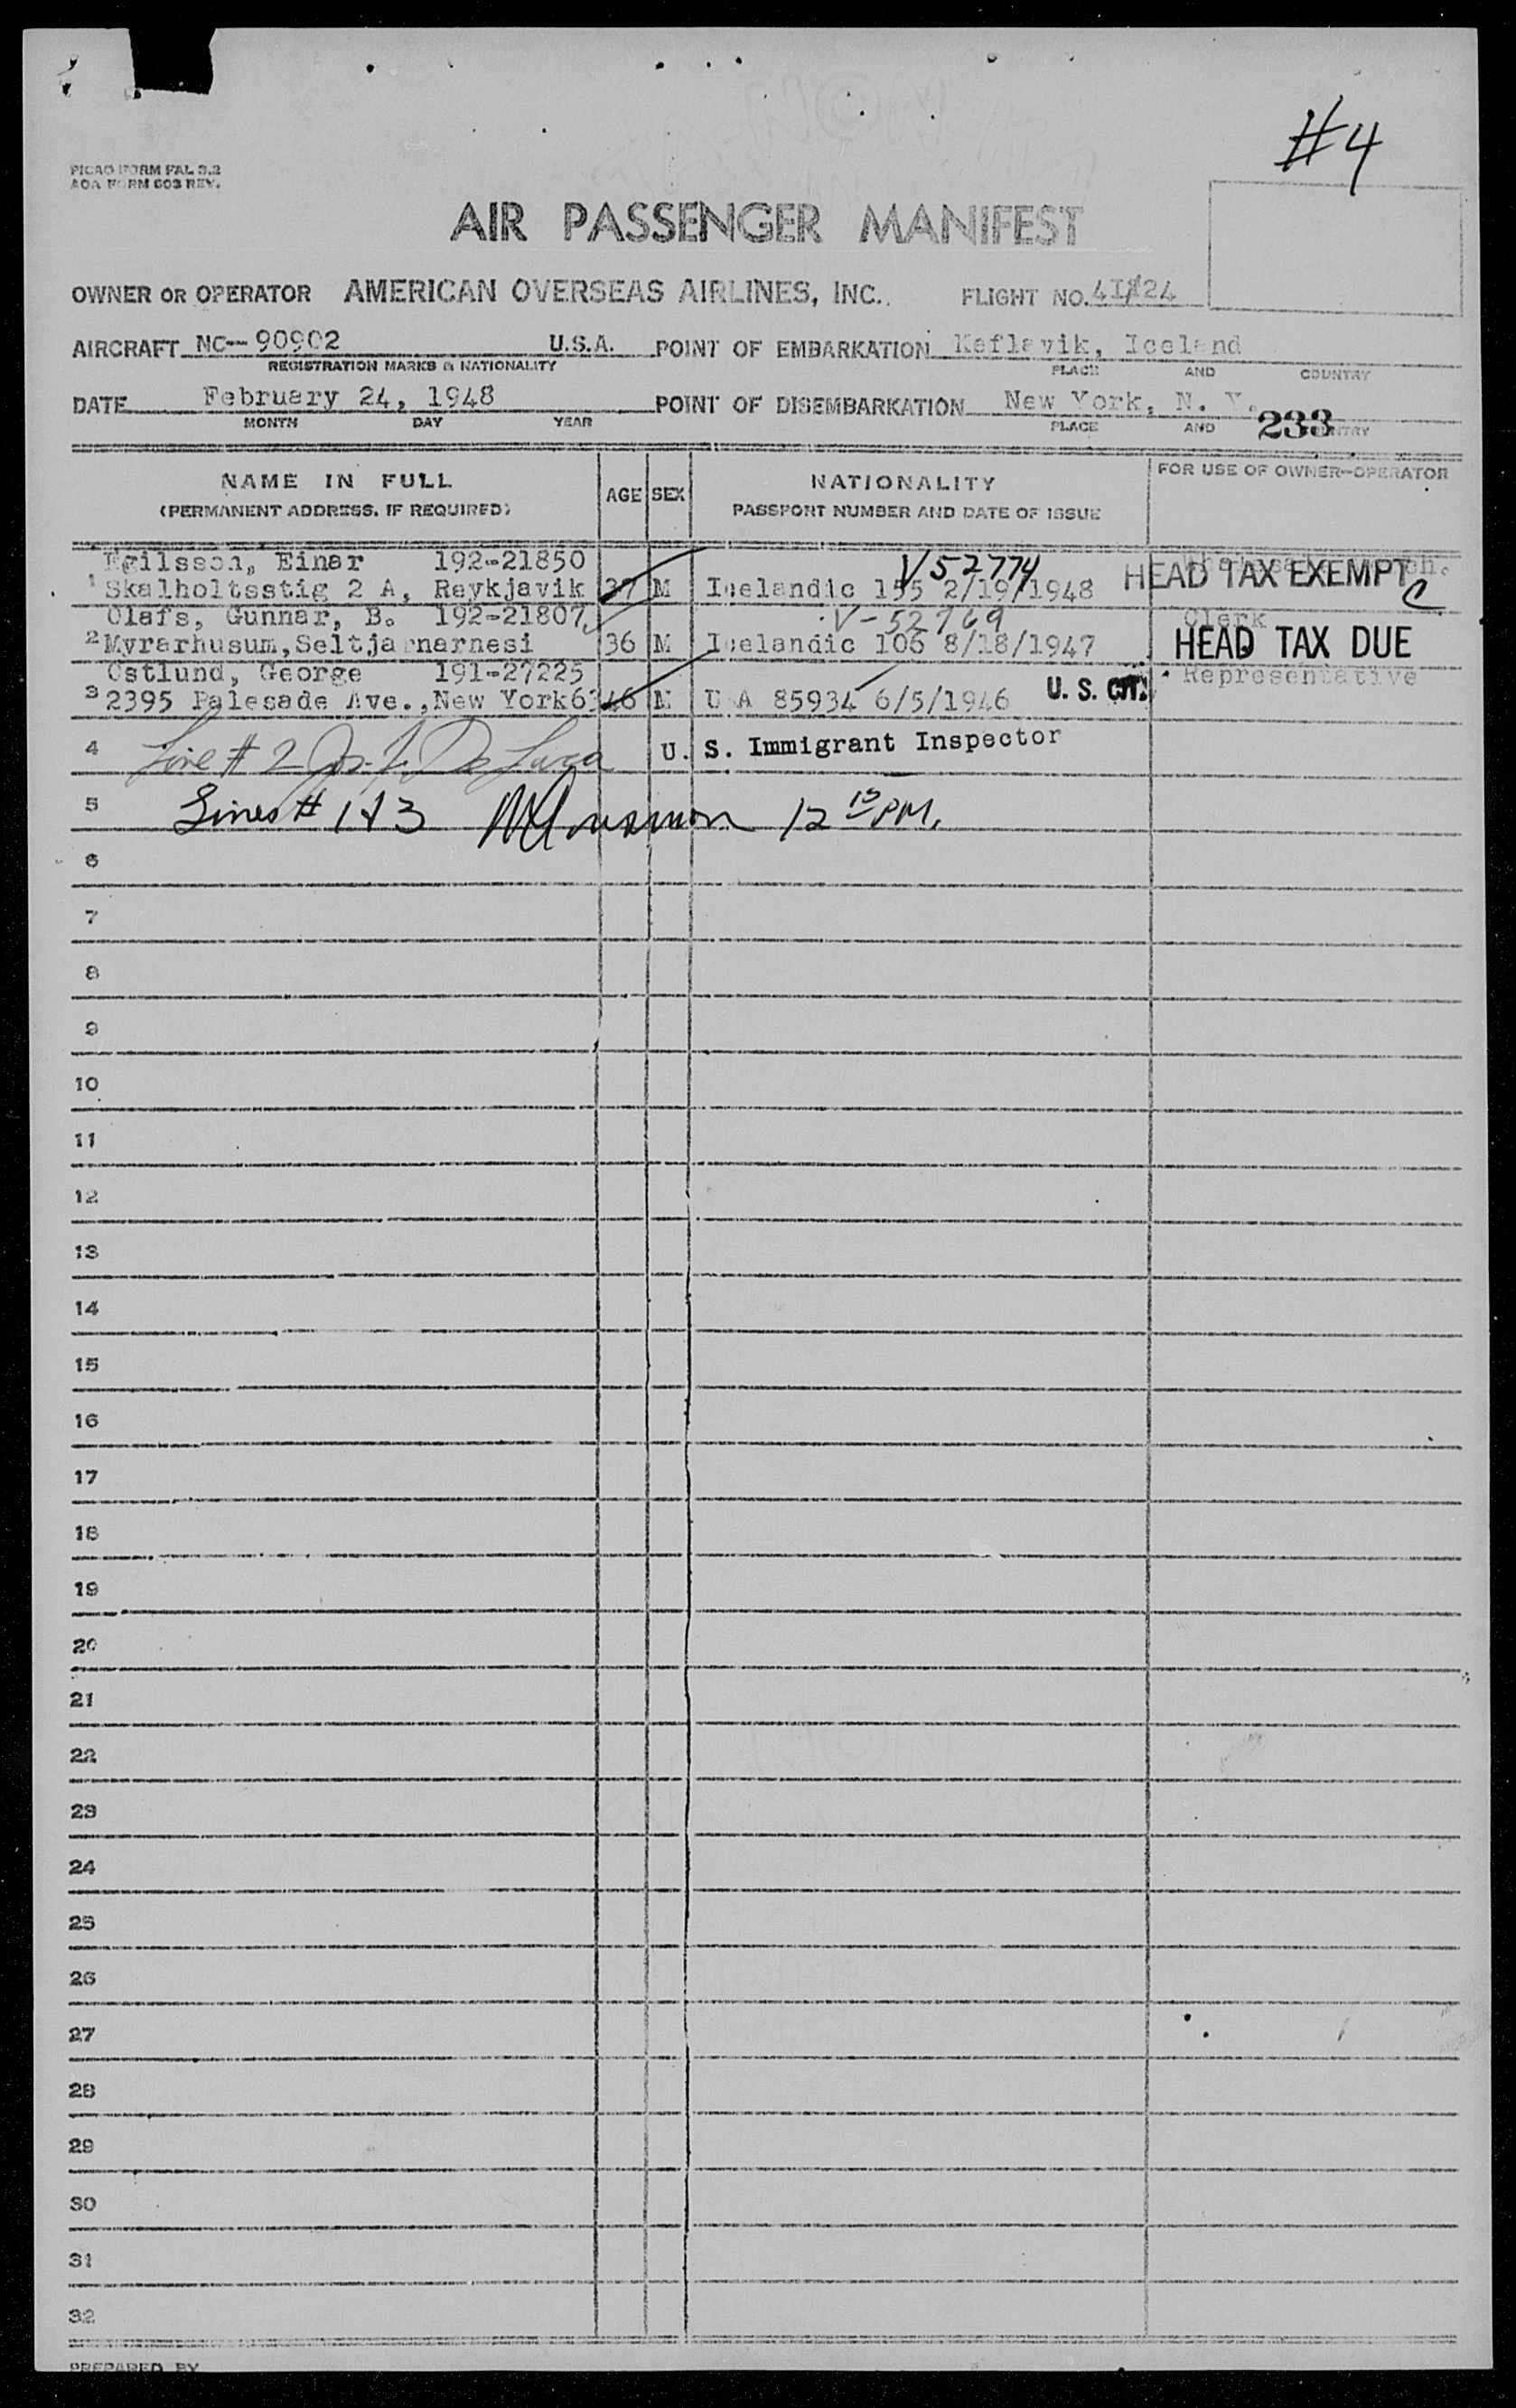 #4
PICAO FORM FAL 3.2
AOA FORM 603 REV.
AIR PASSENGER MANIFEST
OWNER OR OPERATOR AMERICAN OVERSEAS AIRLINES, INC. FLIGHT NO. 24
AIRCRAFT NC-90902 U.S.A. POINT OF EMBARKATION Keflavik, Iceland
REGISTRATION MARKS & NATIONALITY PLACE AND COUNTRY
DATE February 24, 1948 POINT OF DISEMBARKATION New York, N. Y. 233
MONTH DAY YEAR PLACE AND COUNTRY
NAME IN FULL
(PERMANENT ADDRESS, IF REQUIRED)
AGE SEX
NATIONALITY
PASSPORT NUMBER AND DATE OF ISSUE
FOR USE OF OWNER-OPERATOR
Egilsson, Einar 192-21850 V52774
1 Skalholtsstig 2 A, Reykjavik 37 M Icelandic 155 2/19/1948 HEAD TAX EXEMPT C
Olafs, Gunnar, B. 192-21807 V-52769 Clerk
2 Myrarhusum, Seltjarnarnesi 36 M Icelandic 106 8/18/1947 HEAD TAX DUE
Ostlund, George 191-27225 Representative
3 2395 Palesade Ave., New York63 46 M USA 85934 6/5/1946 U. S. CIT.
4 Line # 2 Jos. F. De Luca U. S. Immigrant Inspector
5 Lines # 1 & 3 12 15 PM.
6
7
8
9
10
11
12
13
14
15
16
17
18
19
20
21
22
23
24
25
26
27
28
29
30
31
32
PREPARED BY